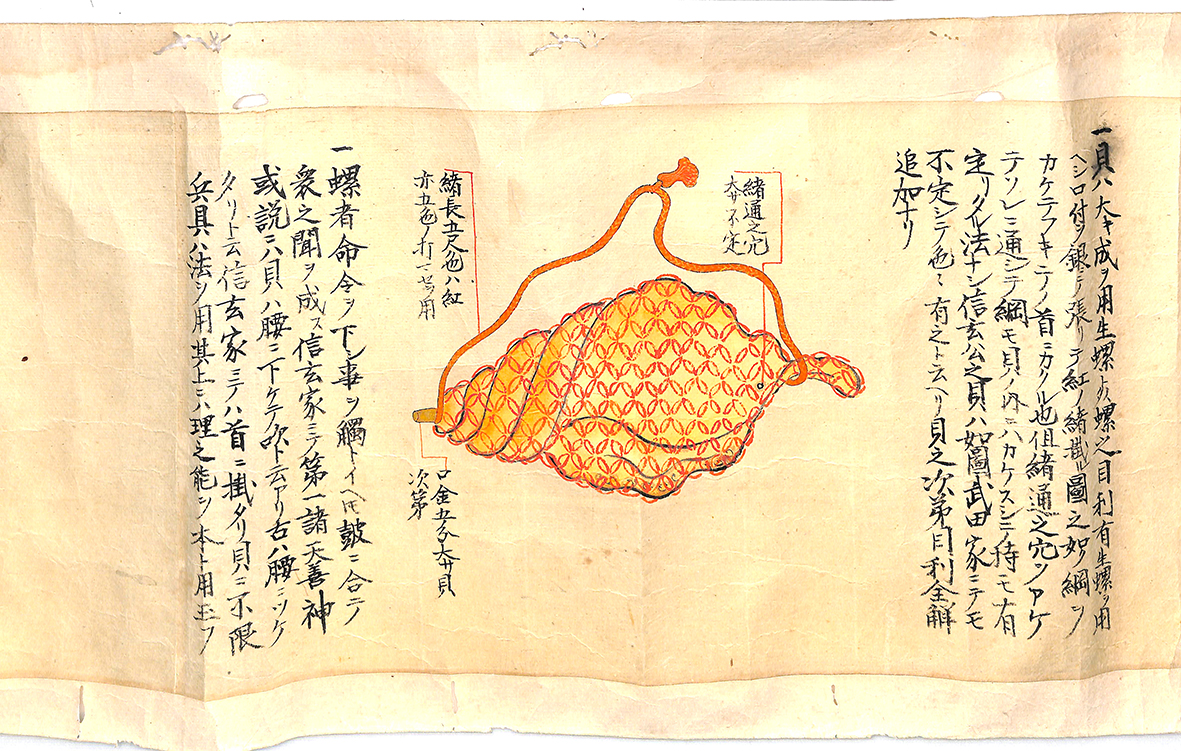 一貝ハ大キ成ヲ用生螺吉螺之目利有生螺ヲ用
ヘシロ付ヲ銀ニテ張リテ紅ノ緒掛ル圖之如ク綱ヲ
カケテフキテノ首ニカクル也但緒通之穴ヲアケ
テソレニ通シテ綱モ貝ノ外ニハカケスシテ侍モ有
定リタル法ナシ信玄公之貝ハ如圖武田家ニテモ
不定シテ色々有之ト云ヘリ貝之次第目利全解
追加ナリ
緒通之穴
大サ不定
緒長五尺色ハ紅
亦五色ノ打マセヲ用
口金五分大サ貝
次第
一螺者命令ヲ下シ事ヲ觸トイヘ𪜈鼓ニ合テ
衆之聞ヲ成ス信玄家ニテ第一諸天善神
或説ニハ貝ハ腰ニ下ケテ吹ト云アリ古ハ腰ニツケ
タリト云信玄家ニテハ首ニ掛タリ貝ニ不限
兵具ハ法ヲ用其上ニハ理之能ヲ本ト用玉フ